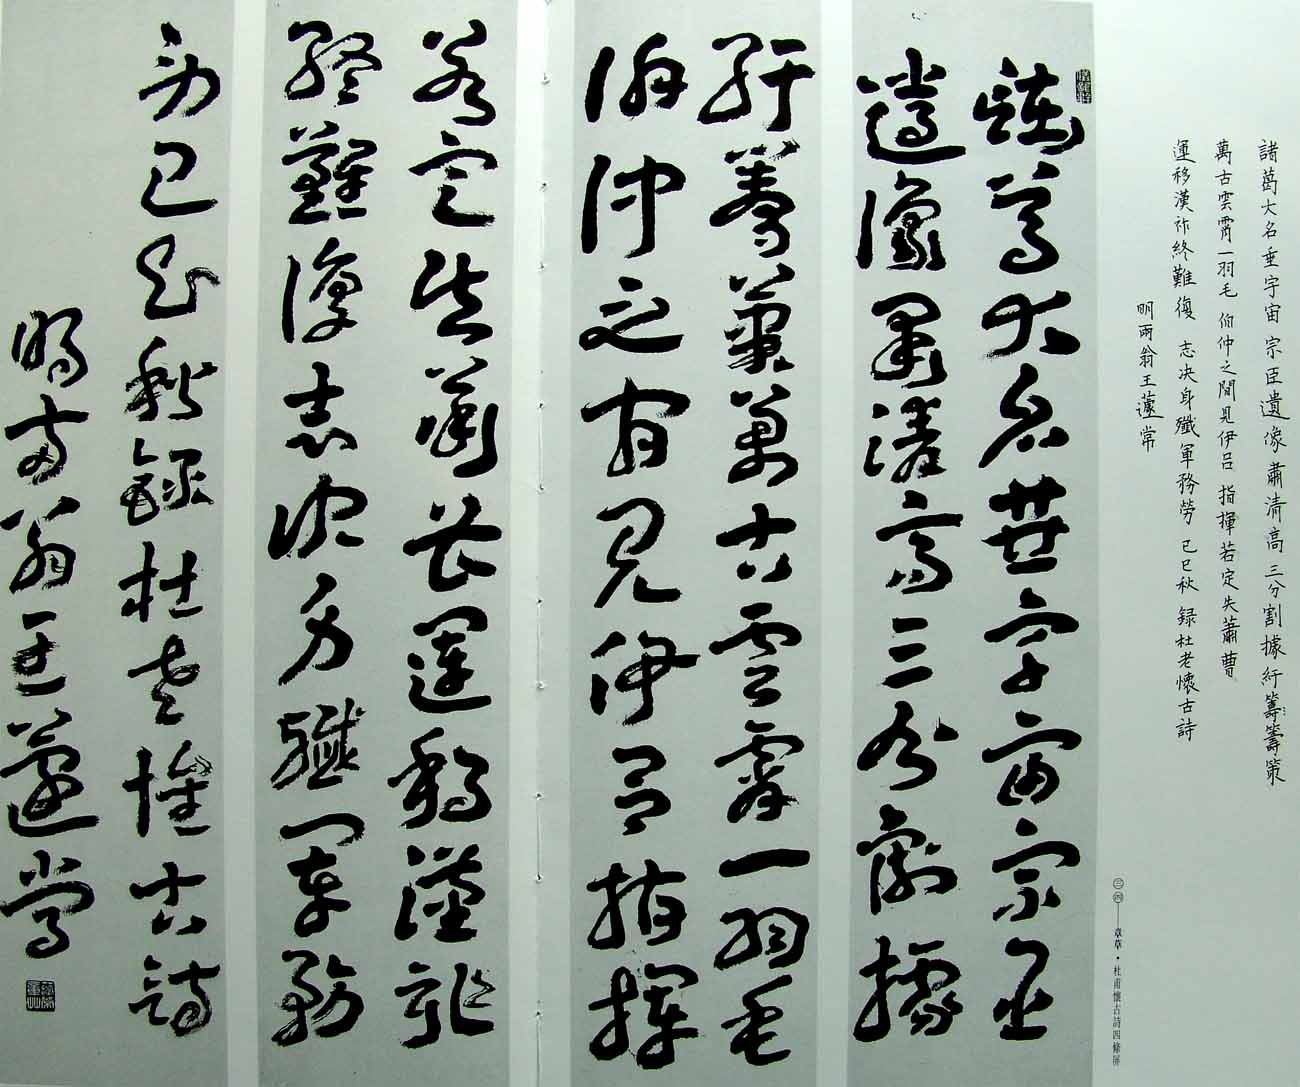 諸葛大名垂宇宙 宗臣遺像肅清高 三分割據紆籌籌策
萬古雲霄一羽毛 伯仲之間見伊呂 指揮若定失蕭曹
運移漢祚終難復 志决身殲軍務勞 己巳秋 録杜老懷古詩
明兩翁王蘧常
三四——章草·杜甫懷古詩四條屏
諸葛大名垂宇宙宗臣
遺像肅清高三分割據
紆籌策萬古雲霄一羽毛
伯仲之間見伊呂指揮
若定失蕭曹運移漢祚
終難復志决身殲軍務
勞己巳秋録杜老懷古詩
明兩翁王蘧常